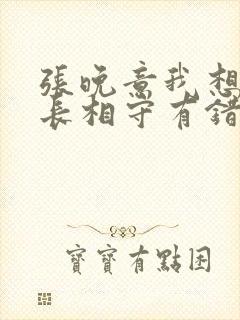 張晚意我想
長相守有錯
寶寶有點困